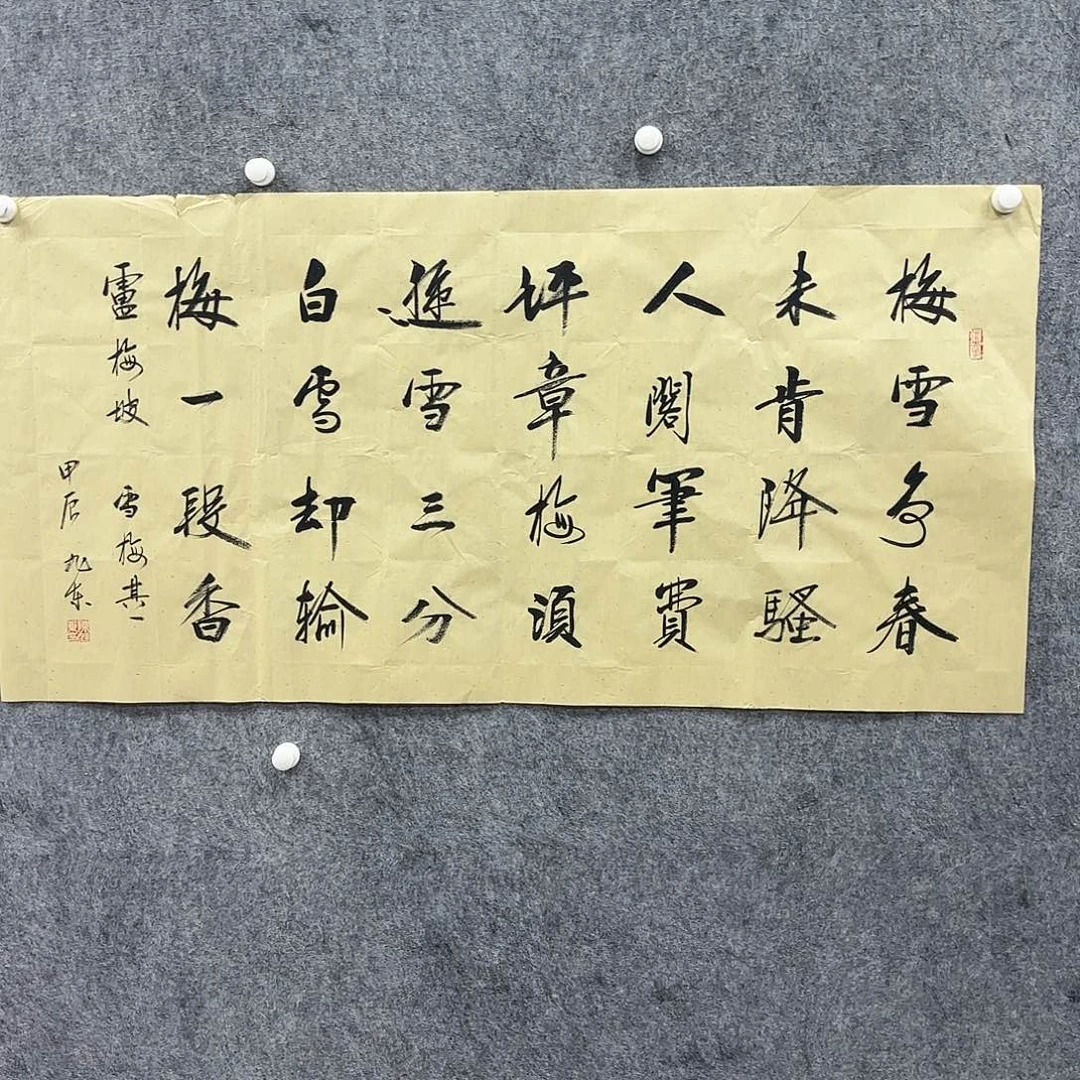 梅雪争春
未肯降騷
人閣筆費
坪章梅湏
遜雪三分
白雪却輸
梅一段香
盧梅坡 雪梅其一
甲辰 旭東